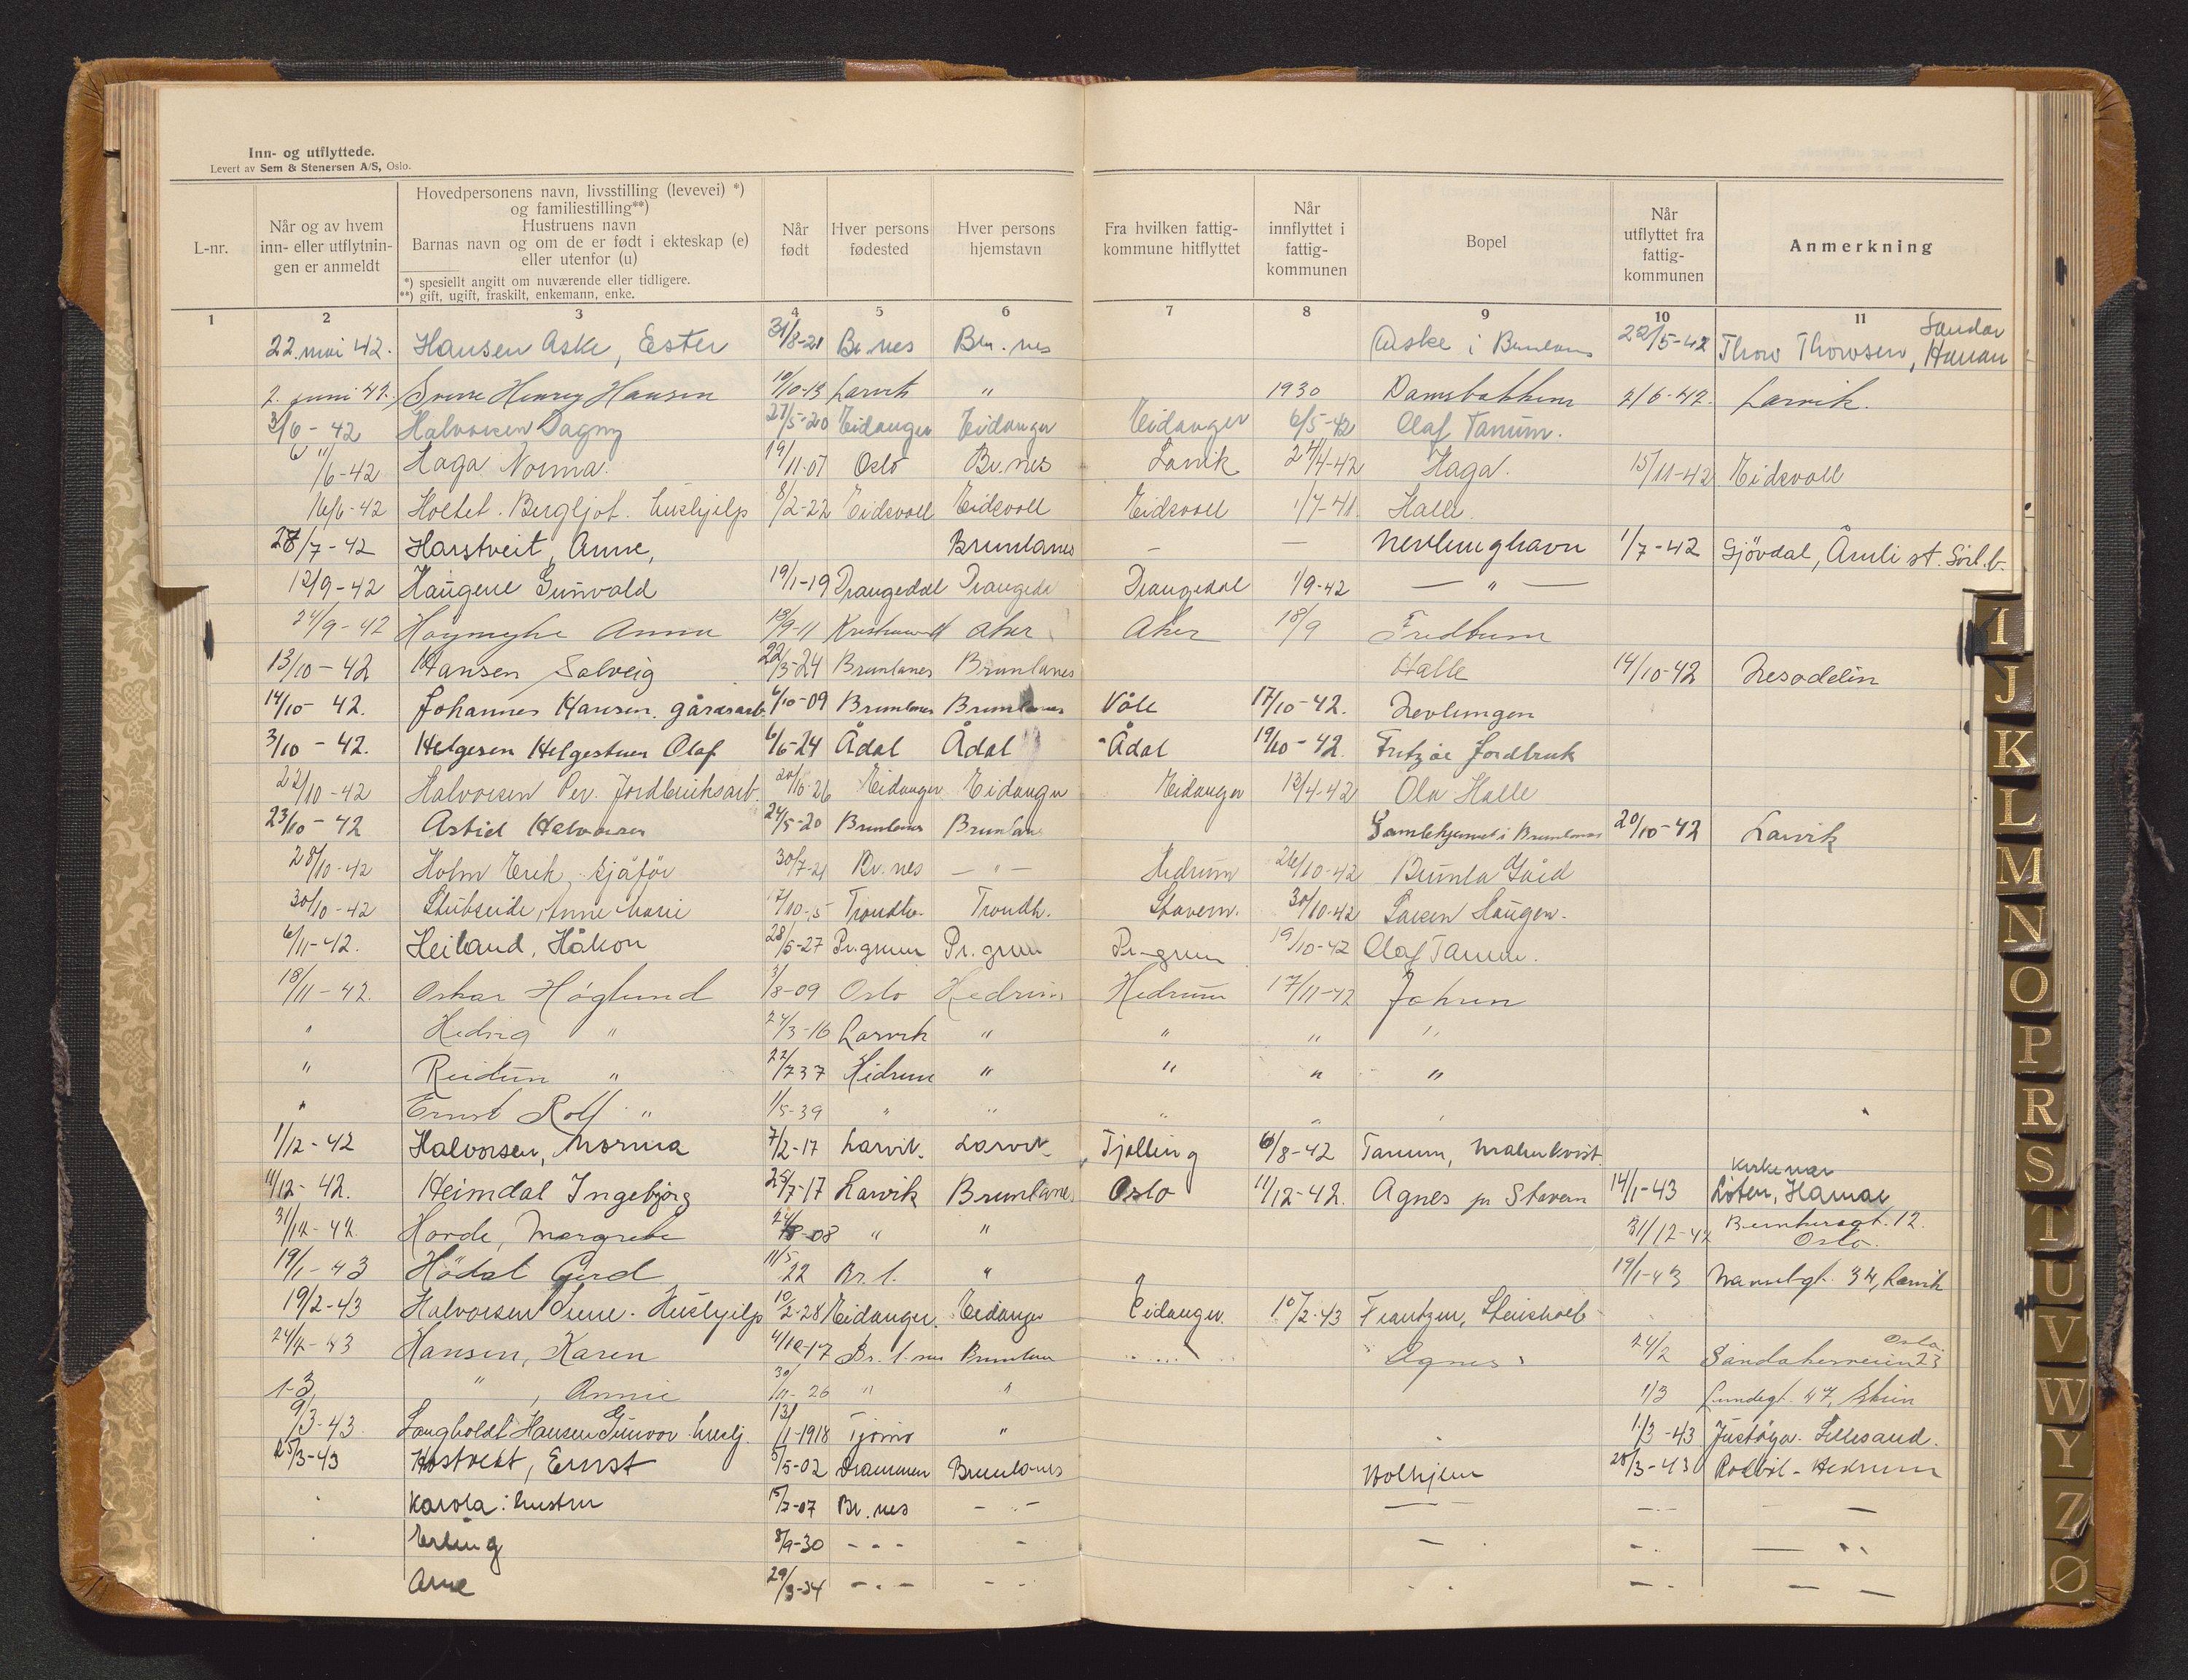 Inn- og utflyttede.
Levert av Sem & Stenersen A/S, Oslo.
L-nr.
Når og av hvem inn- eller utflytnin- gen er anmeldt
Hovedpersonens navn, livsstilling (levevei) *)
og familiestilling**)
Hustruens navn
Barnas navn og om de er født i ekteskap (e)
eller utenfor (u)
*) spesielt angitt om nuværende eller tidligere.
**) gift, ugift, fraskilt, enkemann, enke.
Når født
Hver persons fødested
Hver persons hjemstavn
Fra hvilken fattig- kommune hitflyttet
Når innflyttet i fattig- kommunen
Bopel
Når utflyttet fra fattig- kommunen
Anmerkning
1 2 3 4 5 6 7 8 9 10 11
22. mai 42. Hansen Aske, Ester 31/8-21 Br.nes Bru.nes Aske i Brunlanes 22/5-42 Thow Thowsen, Sandar
2. juni 42. Sverre Henry Hansen 10/10-13 Larvik " 1930 Damsbakken 2/6-42. Larvik.
3/6-42 Halvorsen Dagny 27/5-20 Eidanger Eidanger Eidanger 6/5-42 Olaf Tanum.
/6-42 Haga Norma. 19/11-07 Oslo Br.nes Larvik 24/4-42 Haga. 15/11-42 Eidsvoll
16/6-42 Holtet. Bergljot. hushjelp 8/2-22 Eidsvoll Eidsvoll Eidsvoll 1/7-41. Halle.
28/7-42 Harstveit, Anne, Brunlanes — — Nevlunghavn 1/7-42 Gjövdal, Åmli st. Sörl.b.
12/9-42 Haugene Gunvald 19/1-19 Drangedal Drangedal Drangedal 1/9-42 — " —
24/9-42 Anna 13/9-11 Aker Aker 18/9 Fredbum
13/10-42 Hansen Solveig 22/3-24 Brunlanes Brunlanes Halle 14/10-42 Nesodden
14/10-42. Johannes Hansen. gårdsarb. 6/10-09 Brunlanes Brunlanes Våle 17/10-42. Nevlungen
3/10-42. Helgesen Helgestuen Olaf 6/6-24 Ådal Ådal Ådal 19/10-42. Fritzöe Jordbruk
22/10-42 Halvorsen Per. Jordbruksarb. 20/10-26 Eidanger Eidanger Eidanger 13/4-42 Ola Halle
23/10-42 Astid Halvorsen 24/5-20 Brunlanes Brunlanes Gamlehjemmet i Brunlanes 20/10-42 Larvik
28/10-42 Holm Erik, sjåför 30/7-21 Br.nes — " — Hedrum 26/10-42 Brunla Gård
30/10-42 Anne Marie 7/10-5 Trondh. Trondh. Stavern. 30/10-42 Larsen Haugen.
6/11-42. Heiland, Håkon 28/5-27 Pr.grunn Pr.grunn Pr.grunn 19/10-42 Olaf Tanum.
18/11-42. Oskar Höglund 3/8-09 Oslo Hedrum Hedrum 17/11-42 Johren
" Hedvig " 24/3-16 Larvik " " " "
" Reidun " 22/7 37 Hedrum " " " "
" Ernst Rolf " 1/5-39 " " " " "
1/12-42 Halvorsen, Norma 7/2-17 Larvik. Larvik Tjölling 6/8-42 Tanum, Malmkvist.
11/12-42. Heimdal Ingebjörg 25/7-17 Larvik Brunlanes Oslo 11/12-42. Agnes pr Stavern 14/1-43 Löten, Hamar
31/12-42. Horde, Margrete 24/8-08 " " 31/12-42 12. Oslo.
19/1-43 Hödal Gerd 11/5 22 Br.l. " 19/1-43 34, Larvik
19/2-43 Halvorsen Hushjelp 10/2-28 Eidanger. Eidanger Eidanger. 10/2-43 Frantzen, Stensholt
24/2-43 Hansen, Karen 4/10-17 Br.l.nes Brunlanes Agnes 24/2 Sandakerveien 23 Oslo.
1-3 " , Annie 30/11-26 " " 1/3 Lundegt. 47, Skien
9/3-43. Langholdt Hansen Gunvor. husj. 13/1-1918 Tjömö " 1/3-43 Justöya. Lillesand.
25/3-43 Hostvedt, Ernst 5/5-02 Drammen Brunlanes Holhjem 28/3-43 Hedrum
Karola: hustru 15/7-07 Br.nes — —
Erling 8/9-30 - - -
Arne 29/3-34 - - -
I
J
K
L
M
N
O
P
R
S
T
U
V
W
Y
Z
Ø